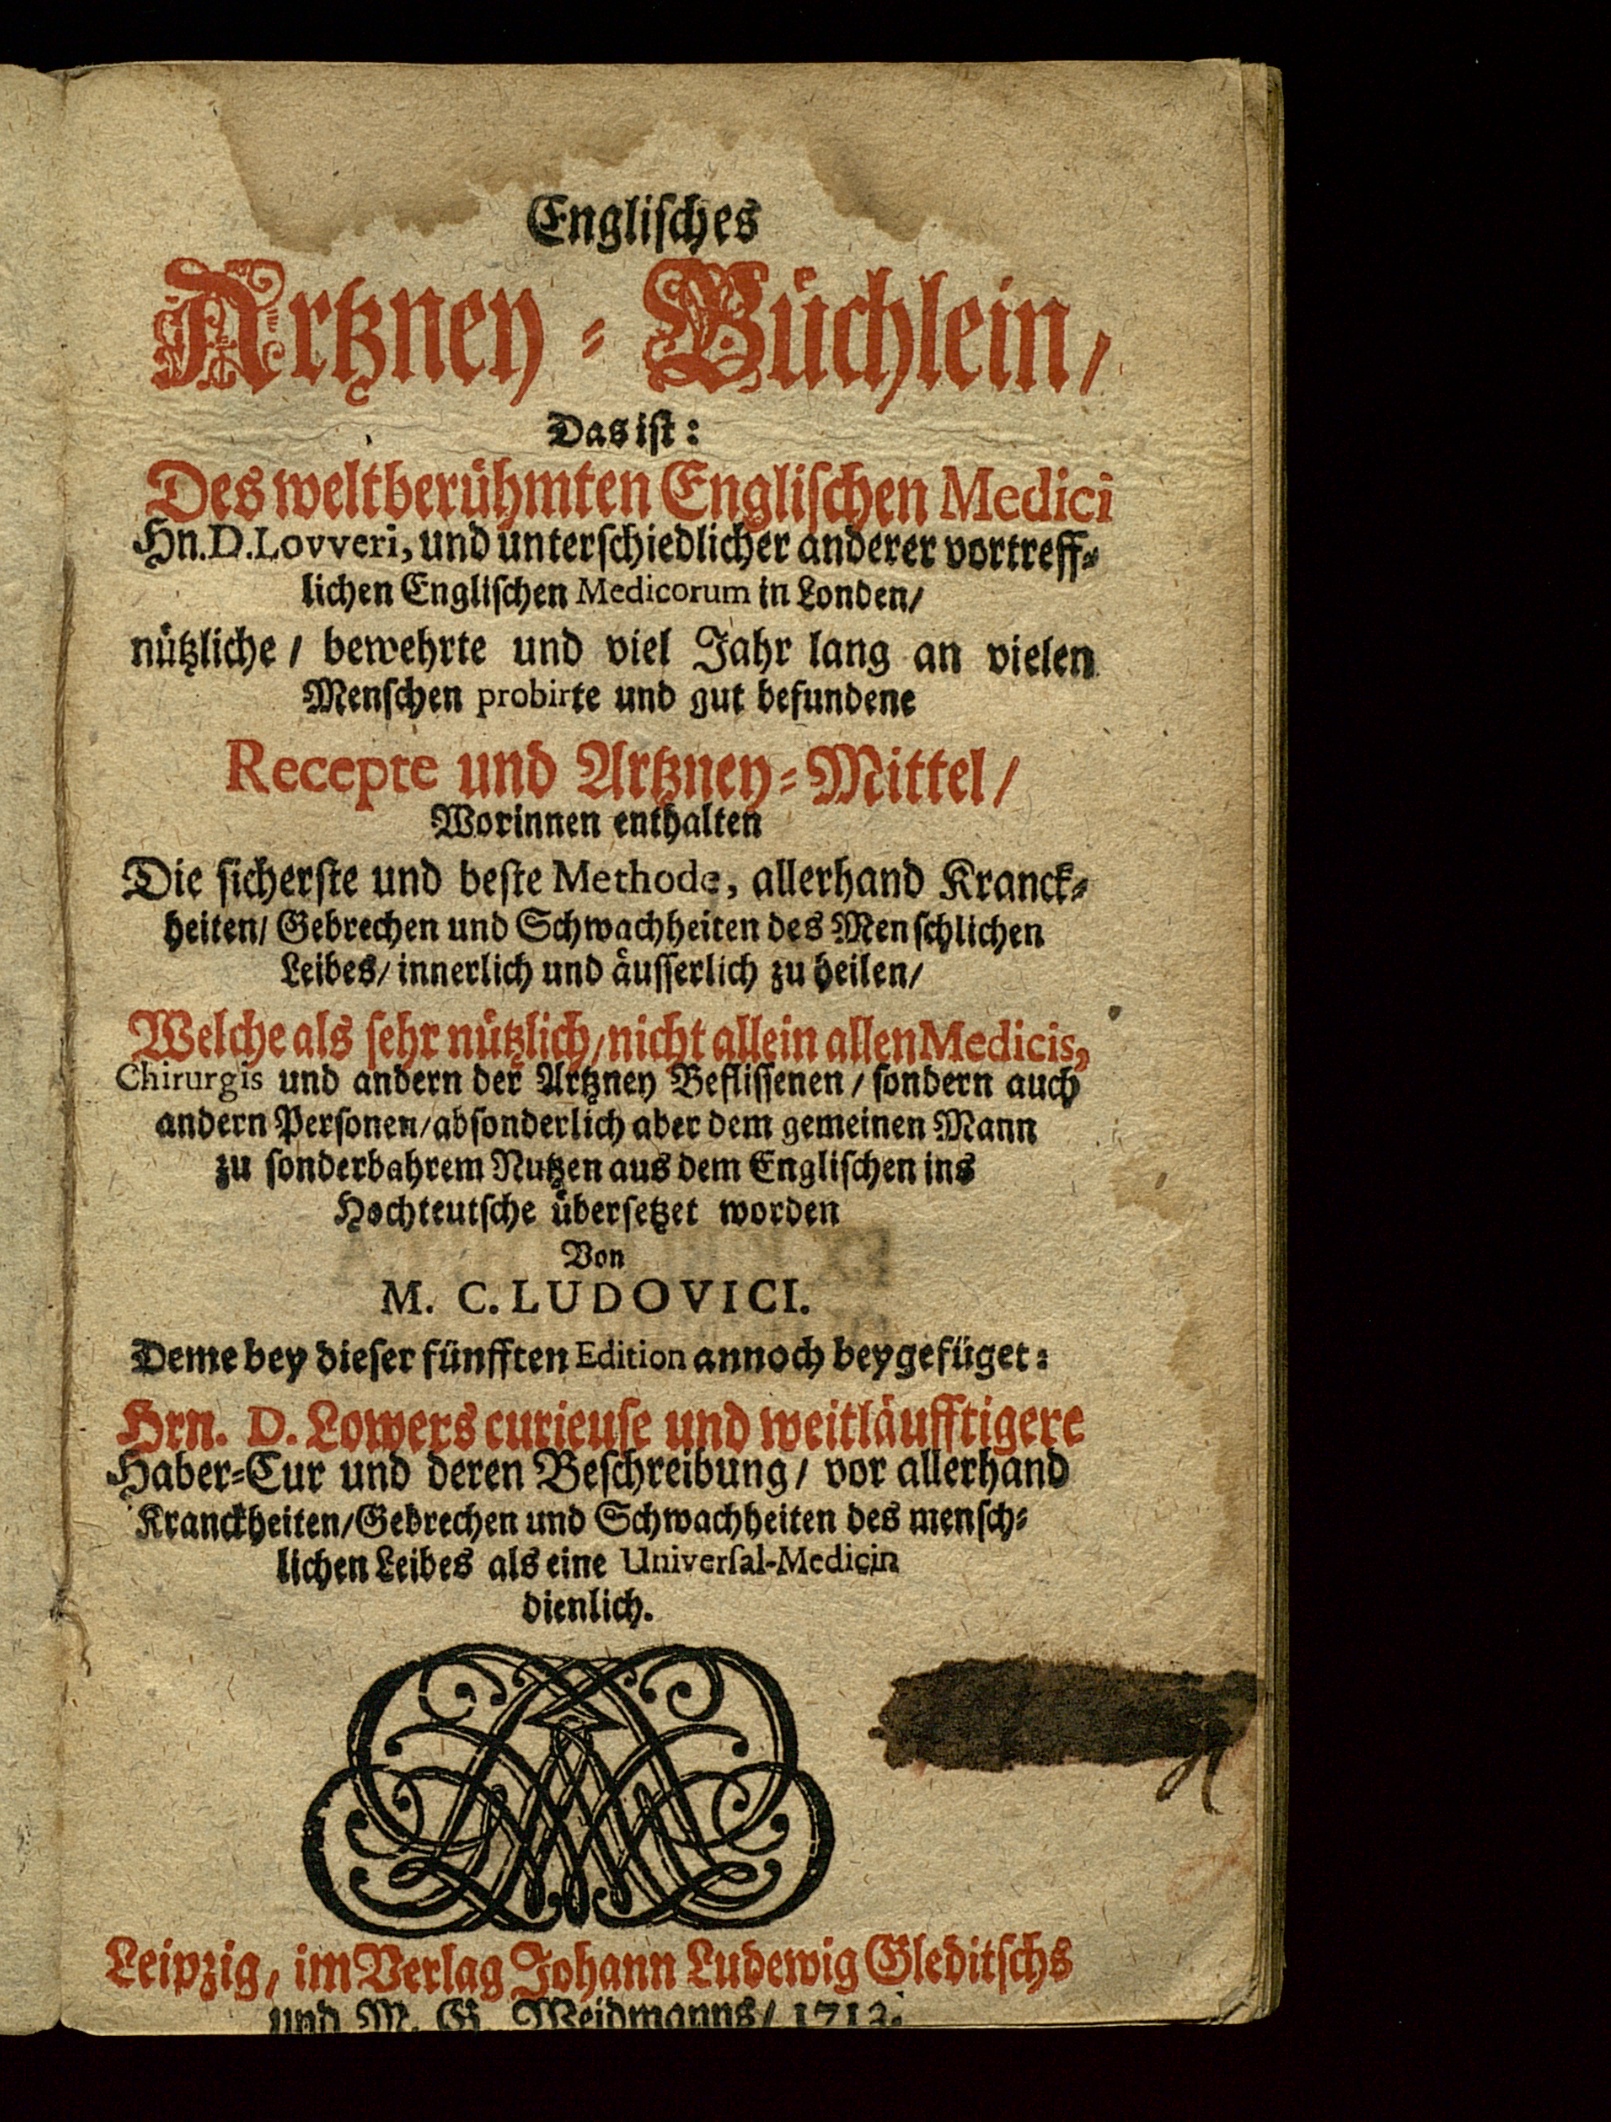 Englisches
Artzney-Büchlein/
Das ist:
Des weltberühmten Englischen Medici
Hn. D. Lovveri, und unterschiedlicher anderer vortreff-
lichen Englischen Medicorum in Londen/
nützliche / bewehrte und viel Jahr lang an vielen
Menschen probirte und gut befundene
Recepte und Artzney-Mittel/
Worinnen enthalten
Die sicherste und beste Methode, allerhand Kranck-
heiten/ Gebrechen und Schwachheiten des Menschlichen
Leibes/ innerlich und äusserlich zu heilen/
Welche als sehr nützlich/nicht allein allen Medicis,
Chirurgis und andern der Artzney Beflissenen / sondern auch
andern Personen/absonderlich aber dem gemeinen Mann
zu sonderbahrem Nutzen aus dem Englischen ins
Hochteutsche übersetzet worden
Von
M. C. LUDOVICI.
Deme bey dieser fünfften Edition annoch beygefüget:
Hrn. D. Lowers curieuse und weitläufftigere
Haber-Cur und deren Beschreibung/ vor allerhand
Kranckheiten/Gebrechen und Schwachheiten des mensch-
lichen Leibes als eine Universal-Medicin
dienlich.
Leipzig, im Verlag Johann Ludewig Gleditschs
und M. G. Weidmanns/